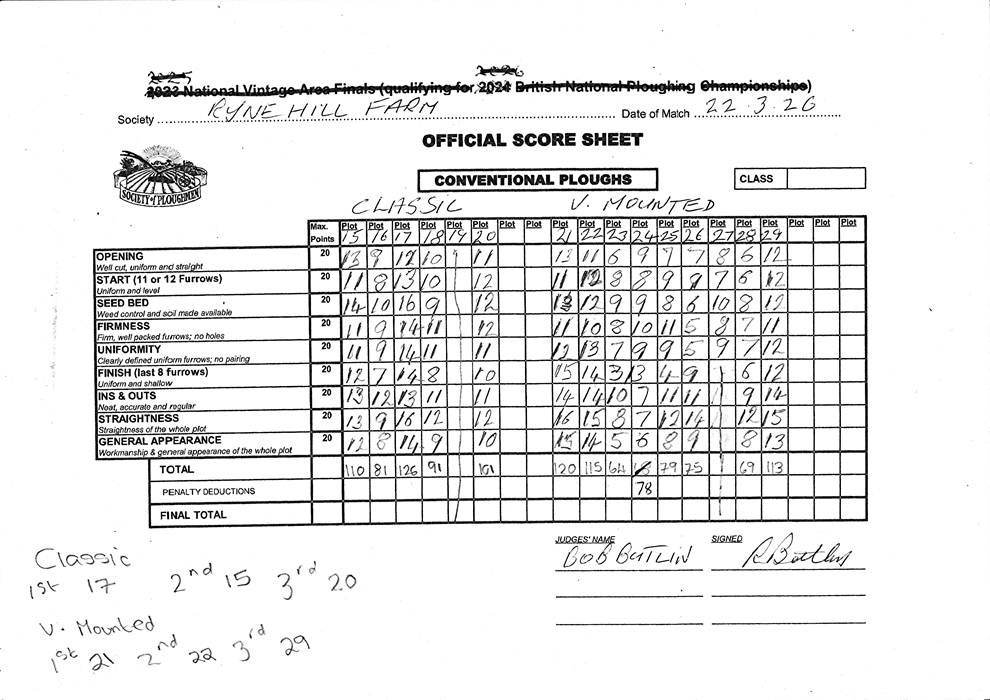 2025 2026
2023 National Vintage Area Finals (qualifying for 2024 British National Ploughing Championships)
Society RYNEHILL FARM Date of Match 22.3.26
OFFICIAL SCORE SHEET
SOCIETY of PLOUGHMEN
CONVENTIONAL PLOUGHS CLASS
CLASSIC V. MOUNTED
Max. Plot Plot Plot Plot Plot Plot Plot Plot Plot Plot Plot Plot Plot Plot Plot Plot Plot Plot Plot Plot
Points 15 16 17 18 19 20 21 22 23 24 25 26 27 28 29
OPENING 20 13 9 12 10 11 13 11 6 9 7 7 8 6 12
Well cut, uniform and straight
START (11 or 12 Furrows) 20 11 8 13 10 12 11 12 8 8 9 9 7 6 12
Uniform and level
SEED BED 20 14 10 16 9 12 13 12 9 9 8 6 10 8 12
Weed control and soil made available
FIRMNESS 20 11 9 14 11 12 11 10 8 10 11 5 8 7 11
Firm, well packed furrows; no holes
UNIFORMITY 20 11 9 14 11 11 12 13 7 9 9 5 9 7 12
Clearly defined uniform furrows; no pairing
FINISH (last 8 furrows) 20 12 7 14 8 10 15 14 3 13 4 9 6 12
Uniform and shallow
INS & OUTS 20 13 12 13 11 11 14 14 10 7 11 11 9 14
Neat, accurate and regular
STRAIGHTNESS 20 13 9 16 12 12 16 15 8 7 12 14 12 15
Straightness of the whole plot
GENERAL APPEARANCE 20 12 8 14 9 10 15 14 5 6 8 9 8 13
Workmanship & general appearance of the whole plot
TOTAL 110 81 126 91 101 120 115 64 79 75 69 113
PENALTY DEDUCTIONS 78
FINAL TOTAL
JUDGES' NAME SIGNED
BOB BUTLIN R Butlin
Classic
1st 17 2nd 15 3rd 20
V. Mounted
1st 21 2nd 22 3rd 29